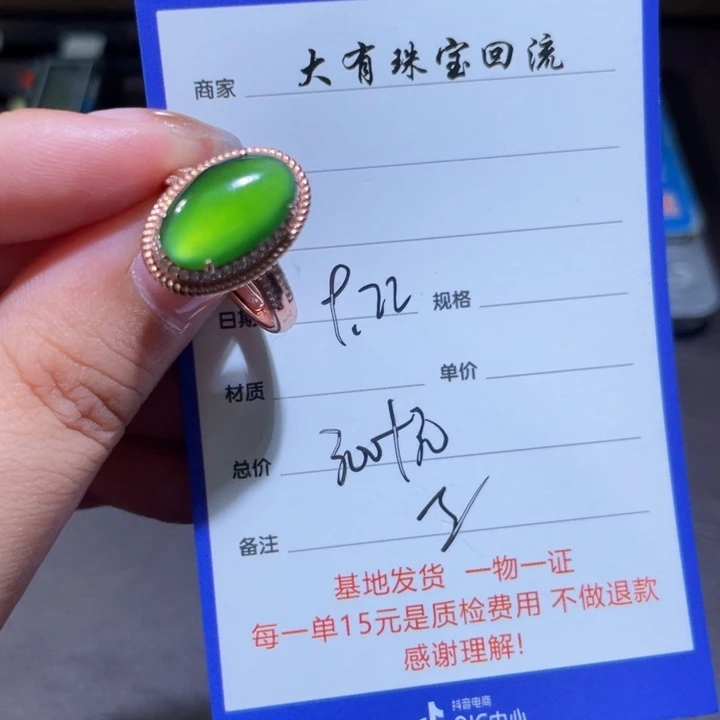 商家 大有珠宝回流
日期 9.22 规格
材质 单价
总价
备注
基地发货 一物一证
每一单15元是质检费用 不做退款
感谢理解!
抖音电商